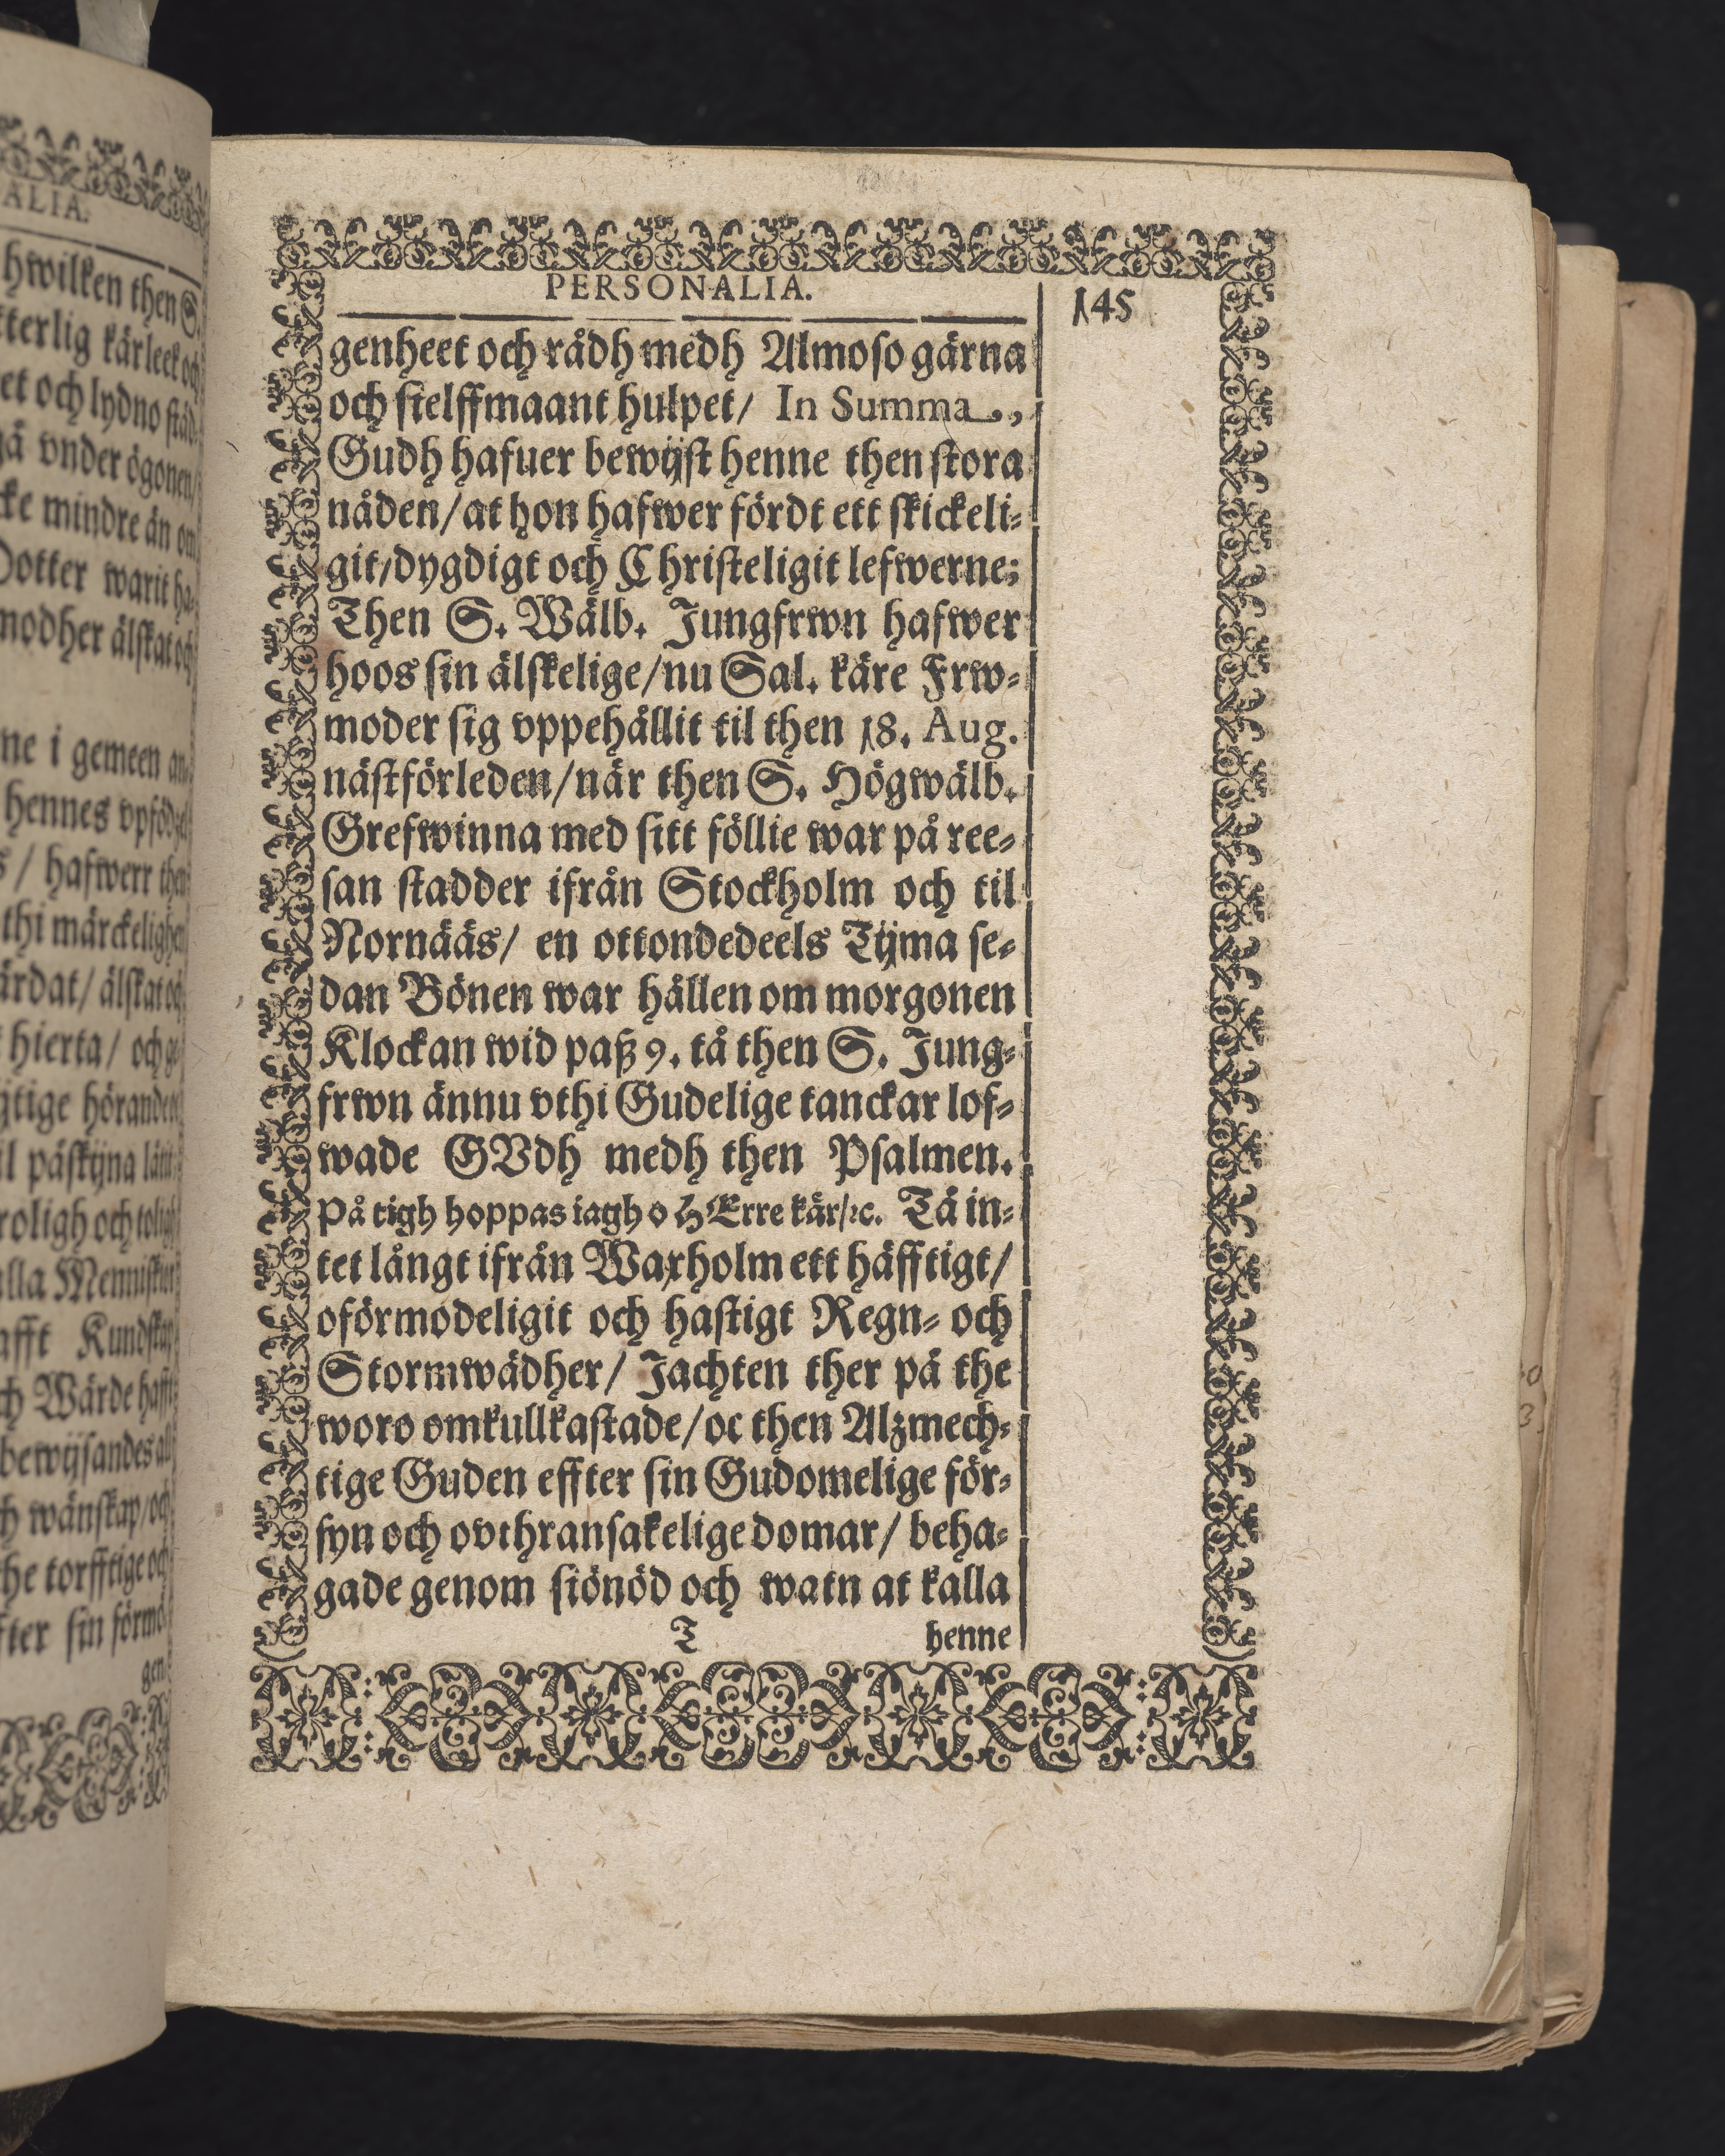 ALIA.
hwilken then S.
kärleek och
et och lydno städ-
gå vnder ögonen/
cke mindre än om
Dotter warit ha-
modher älskat och
ne i gemeen an-
hennes vpföd-
s/ hafwerr then
thi märckelighen
ärdat/ älskat och
hierta/ och ge-
hörande
il påskijna
roligh och
alla Menniskior
afft Kundskap
ch Wärde hafft
bewijsandes al-
ch wänskap/och
the torfftige och
ter sin förmö-
gen-
PERSONALIA.
145
genheet och rådh medh Almoso gärna
och stelffmaant hulpet/ In Summa.,
Gudh hafuer bewijst henne then stora
nåden/at hon hafwer fördt ett skickeli-
git/dygdigt och Christeligit lefwerne;
Then S. Wälb. Jungfrwn hafwer
hoos sin älskelige/nu Sal. käre Frw-
moder sig vppehållit til then 18. Aug.
nästförleden/när then S. Högwälb.
Grefwinna med sitt föllie war på ree-
san stadder ifrån Stockholm och til
Nornääs/ en ottondedeels Tijma se-
dan Bönen war hållen om morgonen
Klockan wid paß 9. tå then S. Jung-
frwn ännu vthi Gudelige tanckar lof-
wade GVdh medh then Psalmen.
På tigh hoppas iagh o HErre kär/ꝛc. Tå in-
tet långt ifrån Waxholm ett häfftigt/
oförmodeligit och hastigt Regn- och
Stormwädher/ Jachten ther på the
woro omkullkastade/oc then Alzmech-
tige Guden effter sin Gudomelige för-
syn och ovthransakelige domar/ beha-
gade genom siönöd och watn at kalla
T henne